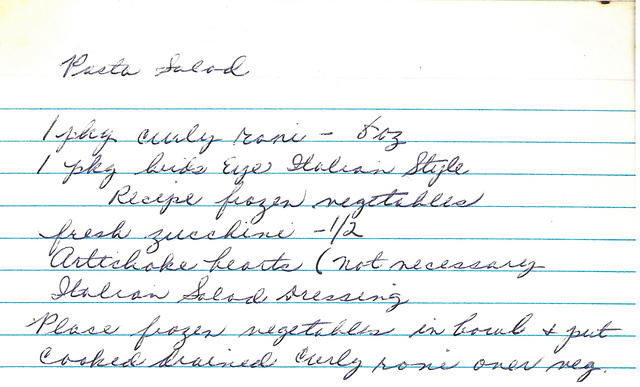 Pasta Salad
1 pkg curly roni - 5 oz
1 pkg birds Eye Italian Style
Recipe frozen vegetables
fresh zucchini - 1/2
Artichoke hearts (not necessary
Italian Salad Dressing
Place frozen vegetables in bowl & put
cooked drained curly roni over veg.